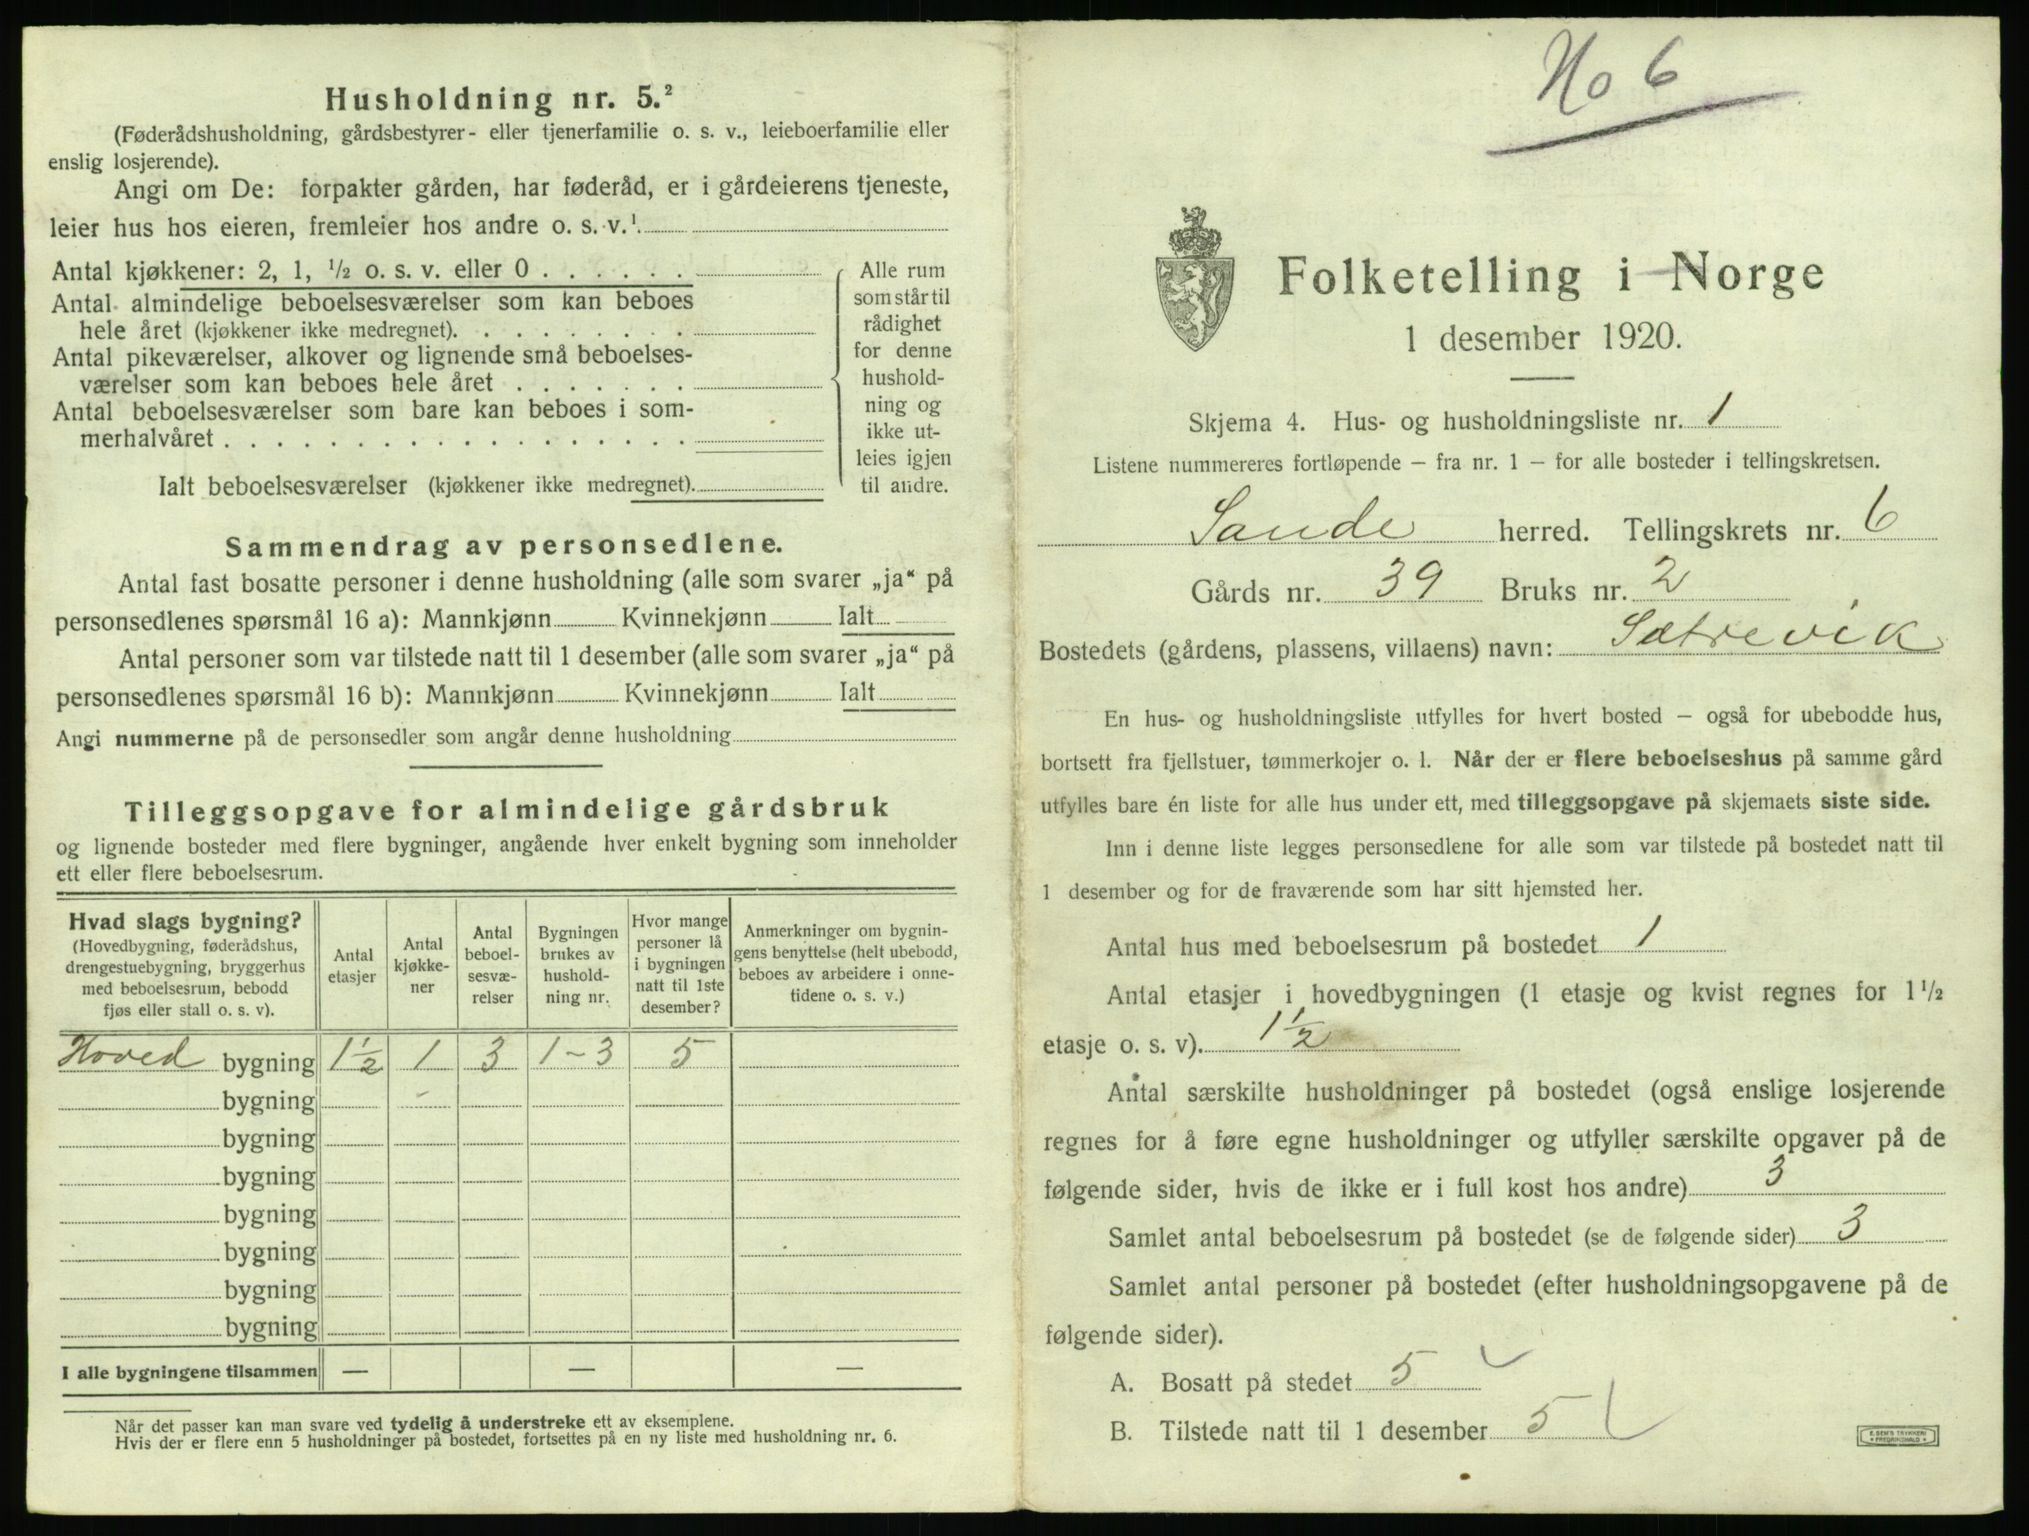 Husholdning nr. 5.²
(Føderådshusholdning, gårdsbestyrer- eller tjenerfamilie o. s. v., leieboerfamilie eller
enslig losjerende).
Angi om De: forpakter gården, har føderåd, er i gårdeierens tjeneste,
leier hus hos eieren, fremleier hos andre o. s. v.¹
Antal kjøkkener: 2, 1, ½ o. s. v. eller 0 . . . . . .
Antal almindelige beboelsesværelser som kan beboes
hele året (kjøkkener ikke medregnet). . . . . . . . .
Antal pikeværelser, alkover og lignende små beboelses-
værelser som kan beboes hele året . . . . . . .
Antal beboelsesværelser som bare kan beboes i som-
merhalvåret . . . . . . . . . . . . . . . . . .
Ialt beboelsesværelser (kjøkkener ikke medregnet).
Alle rum
som står til
rådighet
for denne
hushold-
ning og
ikke ut-
leies igjen
til andre.
Sammendrag av personsedlene.
Antal fast bosatte personer i denne husholdning (alle som svarer „ja“ på
personsedlenes spørsmål 16 a): Mannkjønn Kvinnekjønn Ialt
Antal personer som var tilstede natt til 1 desember (alle som svarer „ja“ på
personsedlenes spørsmål 16 b): Mannkjønn Kvinnekjønn Ialt
Angi nummerne på de personsedler som angår denne husholdning
Tilleggsopgave for almindelige gårdsbruk
og lignende bosteder med flere bygninger, angående hver enkelt bygning som inneholder
ett eller flere beboelsesrum.
Hvad slags bygning?
(Hovedbygning, føderådshus,
drengestuebygning, bryggerhus
med beboelsesrum, bebodd
fjøs eller stall o. s. v).
Antal
etasjer
Antal
kjøkke-
ner
Antal
beboel-
sesvæ-
relser
Bygningen
brukes av
hushold-
ning nr.
Hvor mange
personer lå
i bygningen
natt til 1ste
desember?
Anmerkninger om bygnin-
gens benyttelse (helt ubebodd,
beboes av arbeidere i onne-
tidene o. s. v.)
Hoved bygning 1½ 1 3 1-3 5
bygning -
bygning
bygning
bygning
bygning
bygning
bygning
I alle bygningene tilsammen — — —
Når det passer kan man svare ved tydelig å understreke ett av eksemplene.
Hvis der er flere enn 5 husholdninger på bostedet, fortsettes på en ny liste med husholdning nr. 6.
No 6
Folketelling i Norge
1 desember 1920.
Skjema 4. Hus- og husholdningsliste nr. 1
Listene nummereres fortløpende – fra nr. 1 – for alle bosteder i tellingskretsen.
Sande herred. Tellingskrets nr. 6
Gårds nr. 39 Bruks nr. 2
Bostedets (gårdens, plassens, villaens) navn: Sætrevik
En hus- og husholdningsliste utfylles for hvert bosted – også for ubebodde hus,
bortsett fra fjellstuer, tømmerkojer o. l. Når der er flere beboelseshus på samme gård
utfylles bare én liste for alle hus under ett, med tilleggsopgave på skjemaets siste side.
Inn i denne liste legges personsedlene for alle som var tilstede på bostedet natt til
1 desember og for de fraværende som har sitt hjemsted her.
Antal hus med beboelsesrum på bostedet 1
Antal etasjer i hovedbygningen (1 etasje og kvist regnes for 1½
etasje o. s. v). 1½
Antal særskilte husholdninger på bostedet (også enslige losjerende
regnes for å føre egne husholdninger og utfyller særskilte opgaver på de
følgende sider, hvis de ikke er i full kost hos andre) 3
Samlet antal beboelsesrum på bostedet (se de følgende sider) 3
Samlet antal personer på bostedet (efter husholdningsopgavene på de
følgende sider).
A. Bosatt på stedet 5
B. Tilstede natt til 1 desember 5
E. SEM'S TRYKKERI
• FREDRIKSHALD •